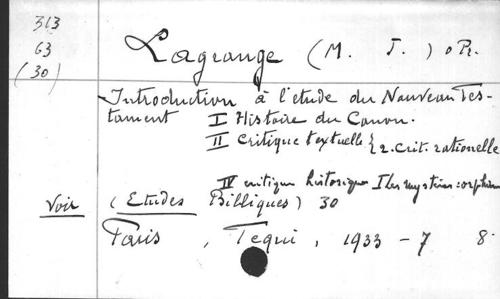 313
63
(30)
Lagrange (M. J.) O Pr.
Introduction à l'etude du Nouveau Tes-
tament I Histoire du Canon.
II Critique textuelle { 2. Crit. rationelle
IV critique historique I les mystères: orphisme
Voir (Etudes Bibliques) 30
Paris, Tequi, 1933 - 7 8.